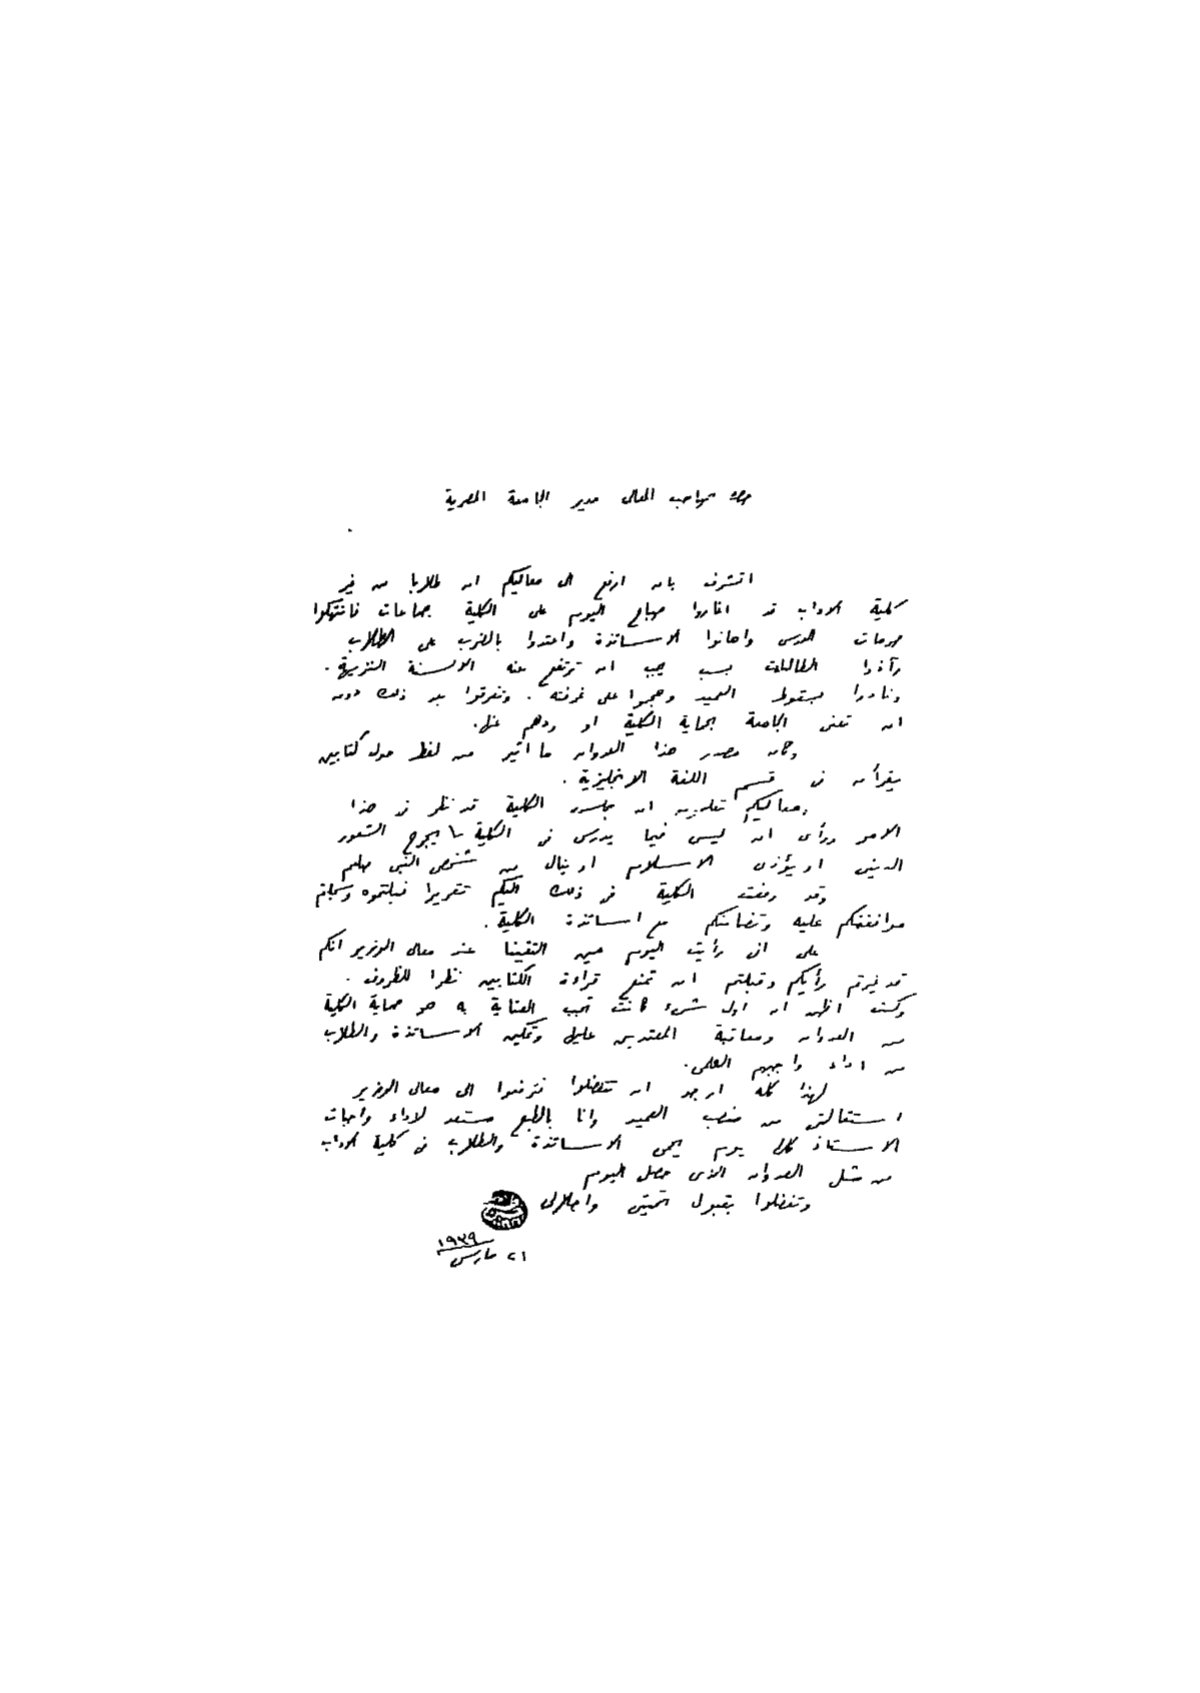 حضرة صاحب المعالى مدير الجامعة المصرية
اتشرف بان ارفع الى معاليكم ان طلابا من غير
كلية الاداب قد اغاروا صباح اليوم على الكلية جماعات فانتهكوا
حرمات الدرس واهانوا الاساتذة واعتدوا بالضرب على الطلاب
وآذوا الطالبات بسب يجب ان ترتفع عنه الالسنة النزيهة.
ونادوا بسقوط العميد وهجموا على غرفته. وتفرقوا بعد ذلك دون
ان تعنى الجامعة بحماية الكلية او ردهم عنها.
وكان مصدر هذا العدوان ما اثير من لغط حول كتابين
يقرأن فى قسم اللغة الانجليزية.
ومعاليكم تعلمون ان مجلس الكلية قد نظر فى هذا
الامر ورأى ان ليس فيما يدرس فى الكلية ما يجرح الشعور
الدينى او يؤذى الاسلام او ينال من شخص النبى صلعم
وقد رفعت الكلية فى ذلك اليكم تقريرا فقبلتموه وسجلتم
موافقتكم عليه وتضامنكم مع اساتذة الكلية.
على انى رأيت اليوم حين التقينا عند معالى الوزير انكم
قد غيرتم رأيكم وقبلتم ان تمنع قراءة الكتابين نظرا للظروف.
وكنت اظن ان اول شىء كانت تجب العناية به هو حماية الكلية
من العدوان ومعاقبة المعتدين عليها وتمكين الاساتذة والطلاب
من اداء واجبهم العلمى.
لهذا كله ارجو ان تتفضلوا فترفعوا الى معالى الوزير
استقالتى من منصب العميد وانا بالطبع مستعد لاداء واجبات
الاستاذ كلها يوم يحمى الاساتذة والطلاب فى كلية الاداب
من مثل العدوان الذى حصل اليوم
وتفضلوا بقبول تحيتى واجلالى
٢١ مارس ١٩٣٩